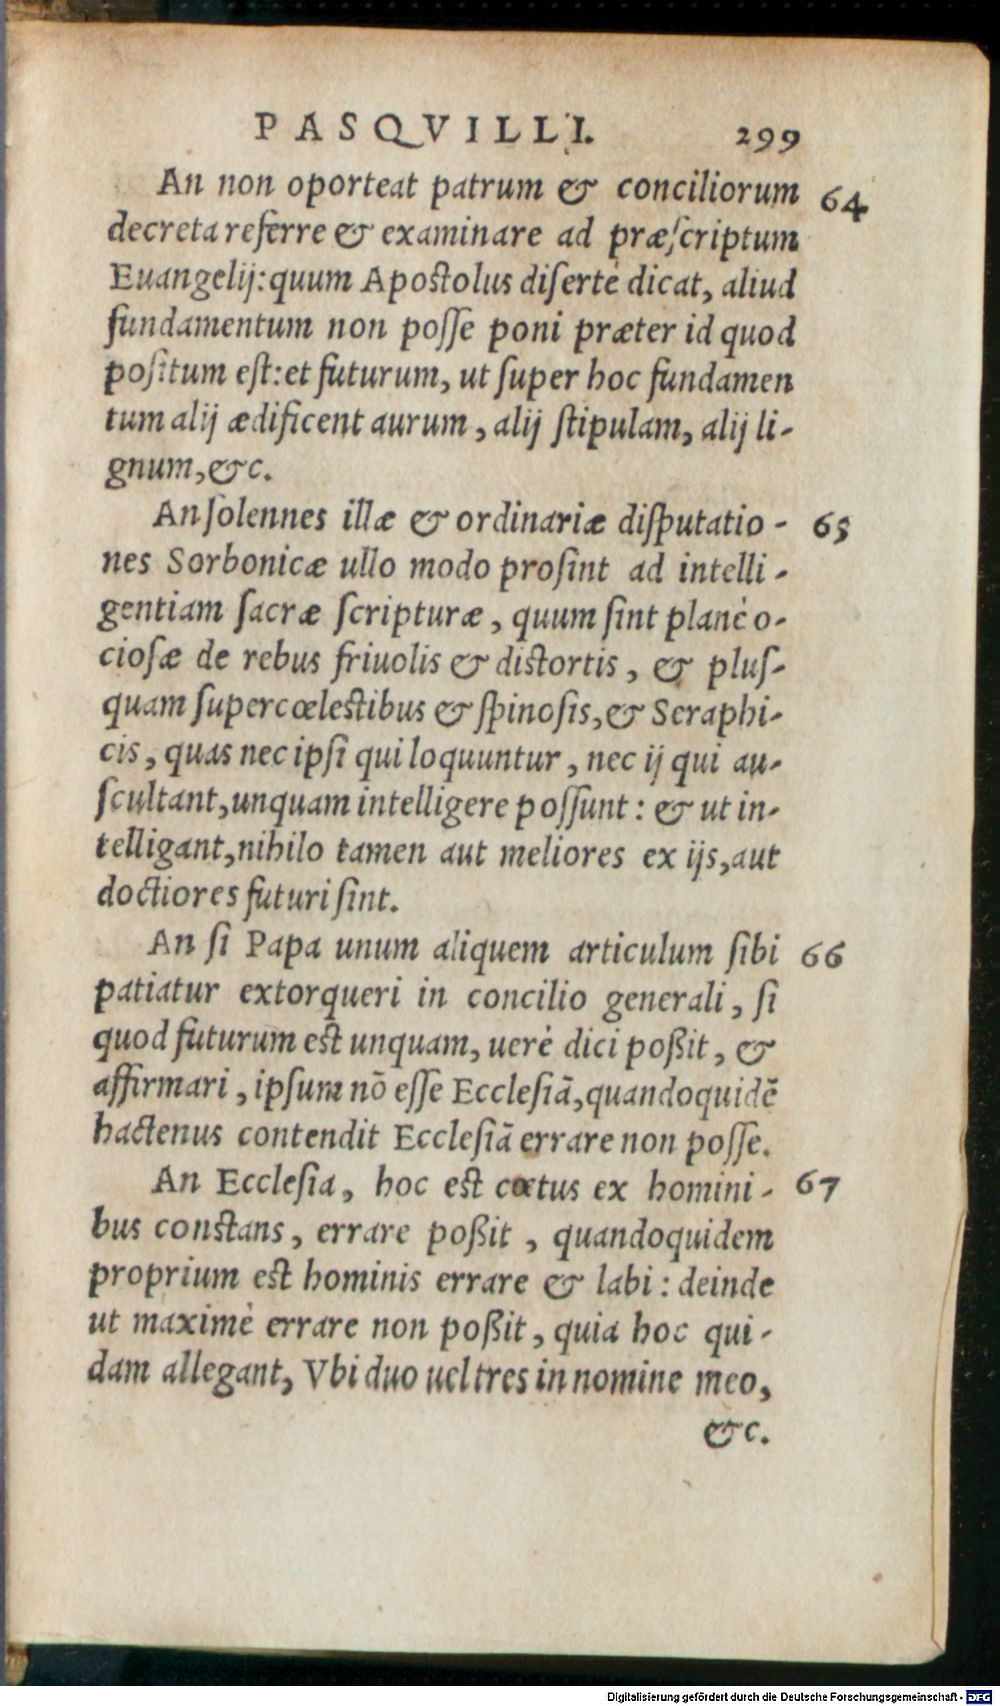 PASQVILLI. 299
An non oporteat patrum & conciliorum 64
decreta referre & examinare ad præſcriptum
Euangelij: quum Apostolus diſertè dicat, aliud
fundamentum non poſſe poni præter id quod
poſitum est: et futurum, ut ſuper hoc fundamen
tum alij ædificent aurum, alij ſtipulam, alij li-
gnum, &c.
An ſolennes illæ & ordinariæ diſputatio- 65
nes Sorbonicæ ullo modo proſint ad intelli-
gentiam ſacræ ſcripturæ, quum ſint planè o-
cioſæ de rebus friuolis & distortis, & pluſ-
quam ſupercœlestibus & ſpinoſis, & Seraphi-
cis, quas nec ipſi qui loquuntur, nec ij qui au-
ſcultant, unquam intelligere poſſunt: & ut in-
telligant, nihilo tamen aut meliores ex ijs, aut
doctiores futuri ſint.
An ſi Papa unum aliquem articulum ſibi 66
patiatur extorqueri in concilio generali, ſi
quod futurum est unquam, uerè dici poßit, &
affirmari, ipſum nō eſſe Eccleſiā, quandoquidē
hactenus contendit Eccleſiā errare non poſſe.
An Eccleſia, hoc est cœtus ex homini- 67
bus constans, errare poßit, quandoquidem
proprium est hominis errare & labi: deinde
ut maximè errare non poßit, quia hoc qui-
dam allegant, Vbi duo uel tres in nomine meo,
&c.
Digitalisierung gefördert durch die Deutsche Forschungsgemeinschaft - DFG